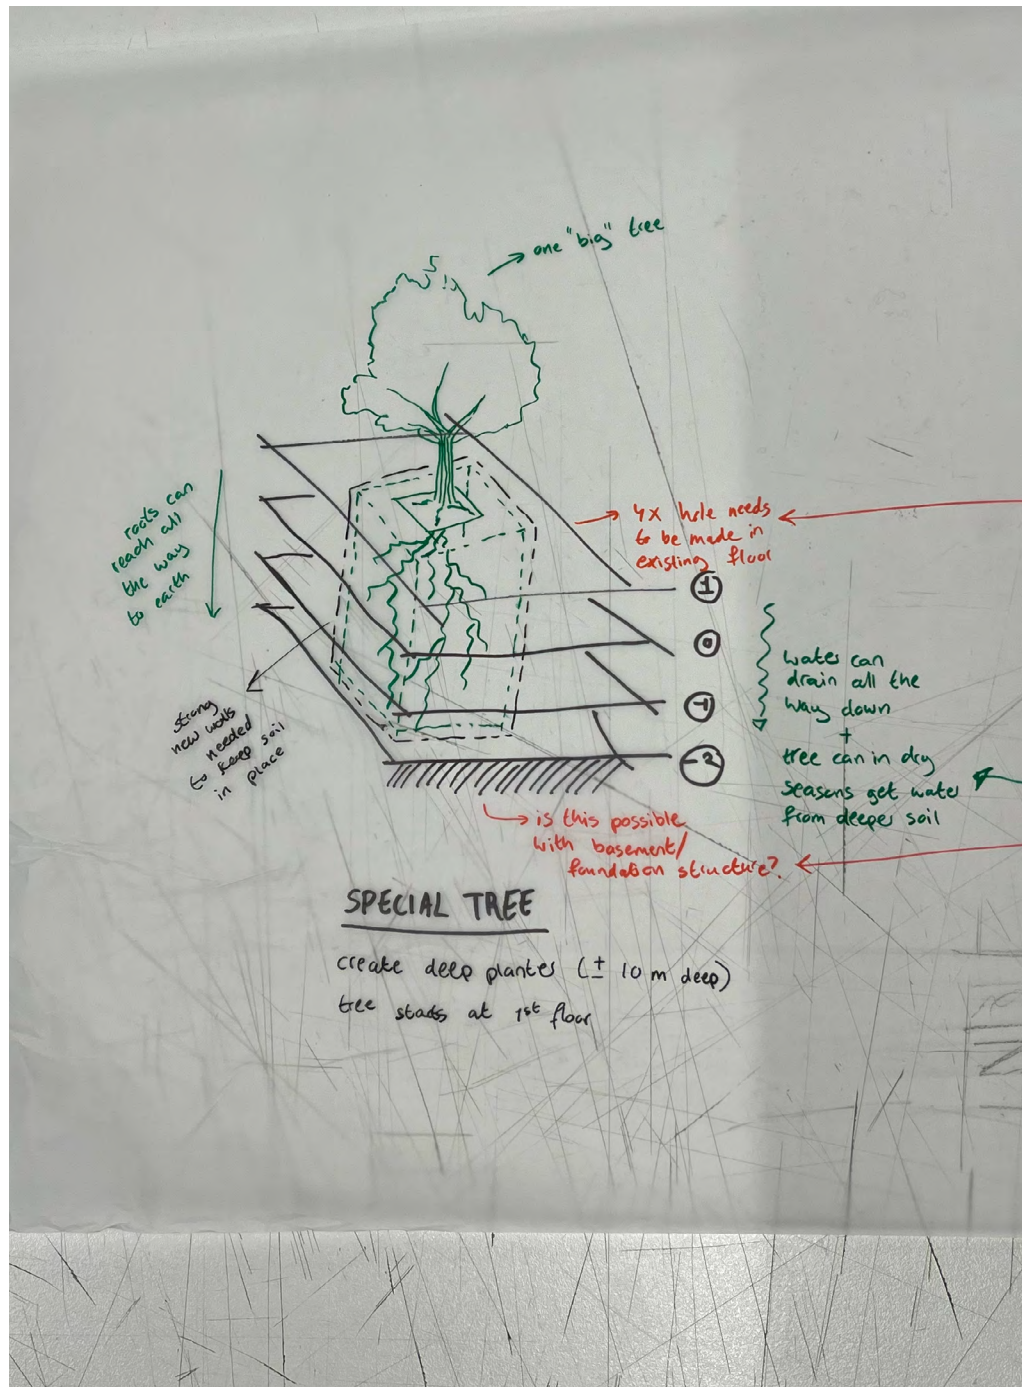 one "big" tree
roots can
reach all
the way
to earth
4x hole needs
to be made in
existing floor
1
0
-1
-2
water can
drain all the
way down
+
tree can in dry
seasons get water
from deeper soil
strong
new walls
needed
to keep soil
in place
is this possible
with basement/
foundation structure?
SPECIAL TREE
create deep planter (± 10 m deep)
tree starts at 1st floor